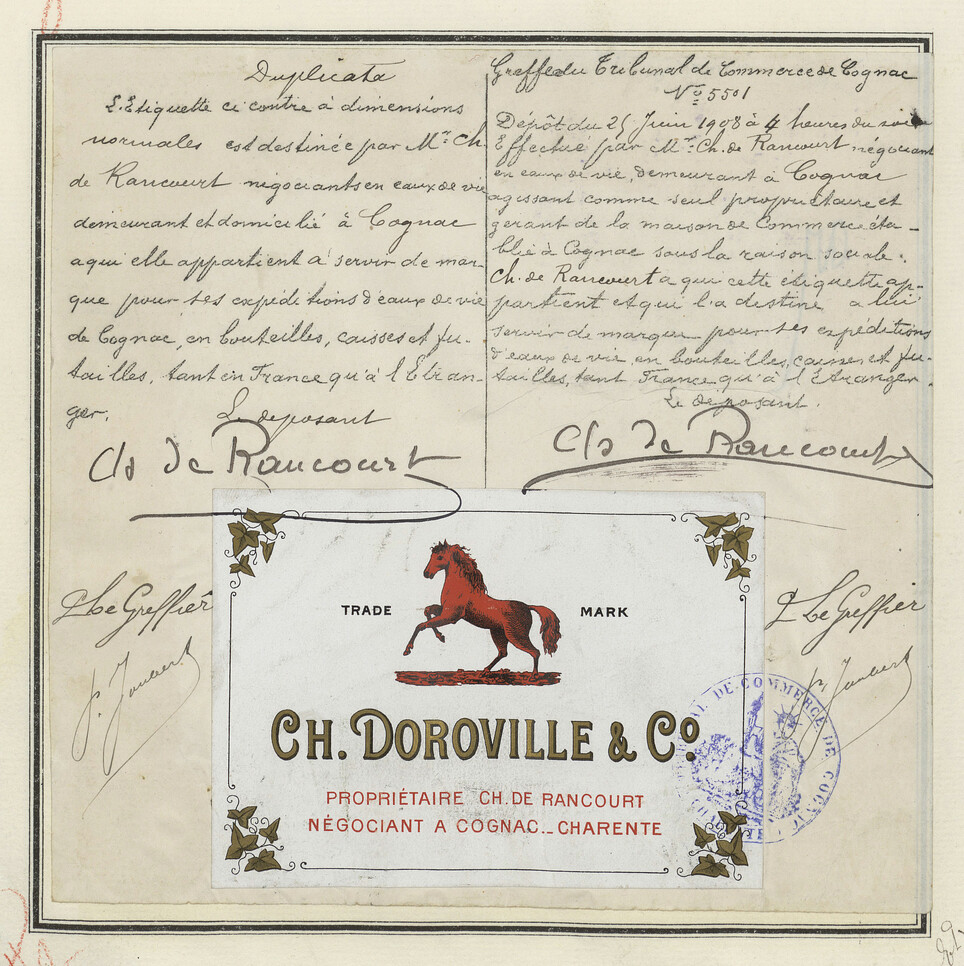 Duplicata
L'Etiquette ci contre à dimensions
normales est destinée par Mr. Ch.
de Rancourt négociants en eaux de vie
demeurant et domicilié à Cognac
a qui elle appartient à servir de mar-
que pour ses expéditions d'eaux de vie
de Cognac, en bouteilles, caisses et fu-
tailles, tant en France qu'à l'Etran-
ger.
Le déposant
Ch de Rancourt
Greffe du Tribunal de Commerce de Cognac
No 5501
Dépôt du 25 Juin 1908 à 4 heures du soir
Effectué par Mr. Ch. de Rancourt négociant
en eaux de vie, demeurant à Cognac
agissant comme seul propriétaire et
gérant de la maison de Commerce éta-
blie à Cognac sous la raison sociale :
Ch. de Rancourt a qui cette étiquette ap-
partient et qui l'a destine a lui
servir de marque pour ses expéditions
d'eaux de vie, en bouteilles, caisses et fu-
tailles, tant France qu'à l'Etranger.
Le déposant.
Ch de Rancourt
P Le Greffier
P Le Greffier
TRADE MARK
CH. DOROVILLE & Co.
PROPRIÉTAIRE CH. DE RANCOURT
NÉGOCIANT A COGNAC_ CHARENTE
DE COMMERCE DE COGNAC